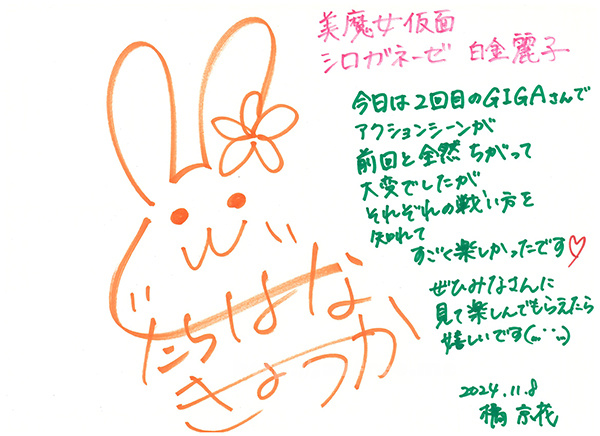 美魔女仮面
シロガネーゼ 白金麗子
今日は2回目のGIGAさんで
アクションシーンが
前回と全然ちがって
大変でしたが
それぞれの戦い方を
知れて
すごく楽しかったです♡
ぜひみなさんに
見て楽しんでもらえたら
嬉しいです(,,･･,,)
2024.11.8
橘 京花
たちばな
きょうか